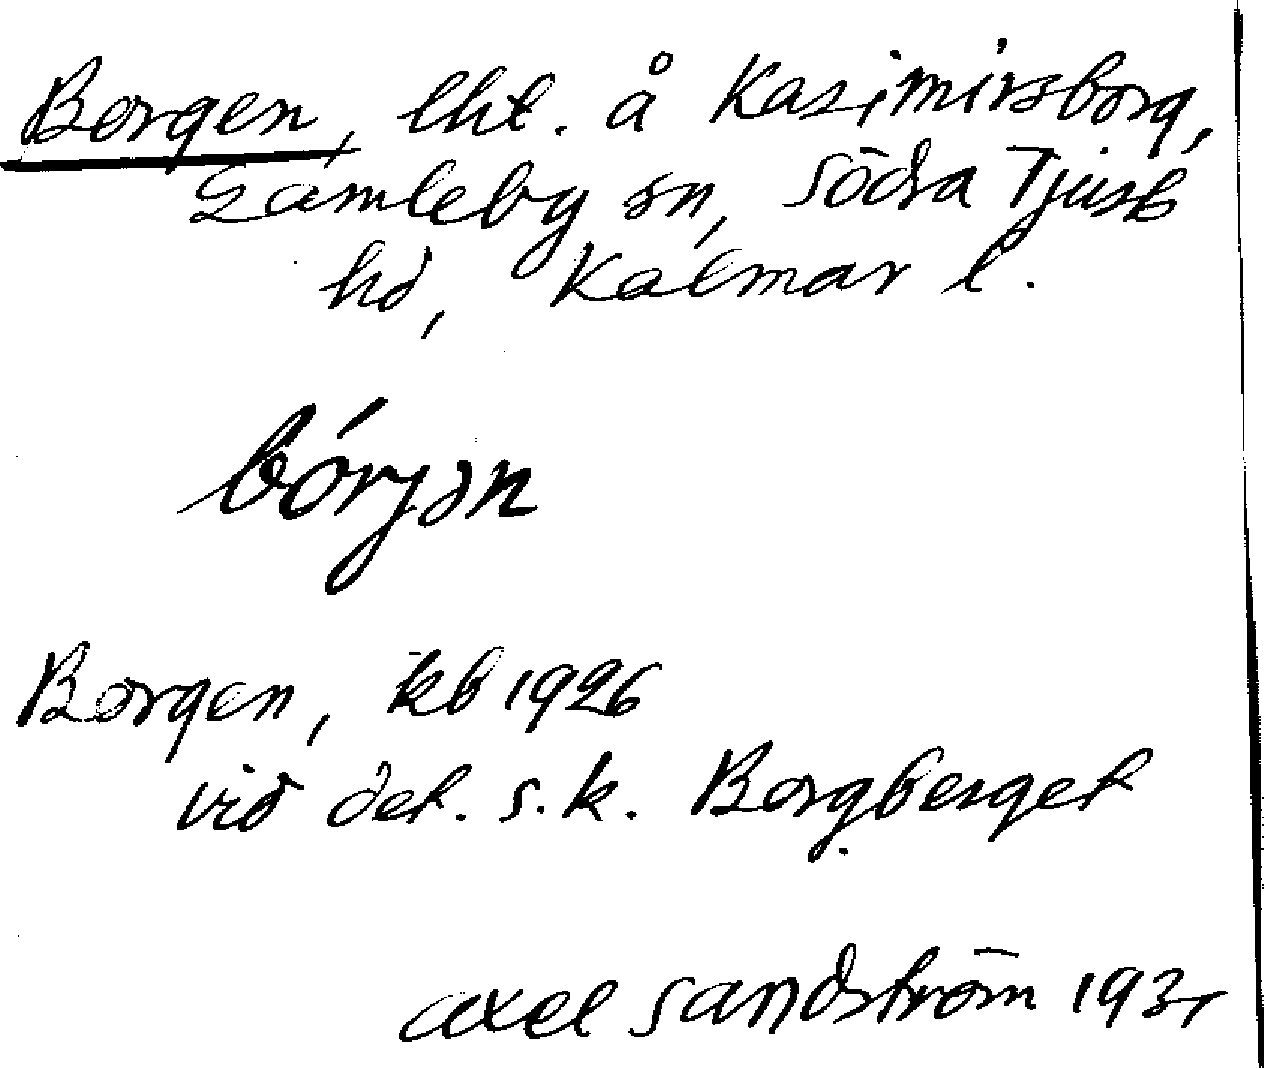 Borgen, lht. å Kasimirsborg,
Gamleby sn, Södra Tjust
hd, Kalmar l.
bórjən
Borgen, kb 1926
vid det. s.k. Borgberget
Axel Sandström